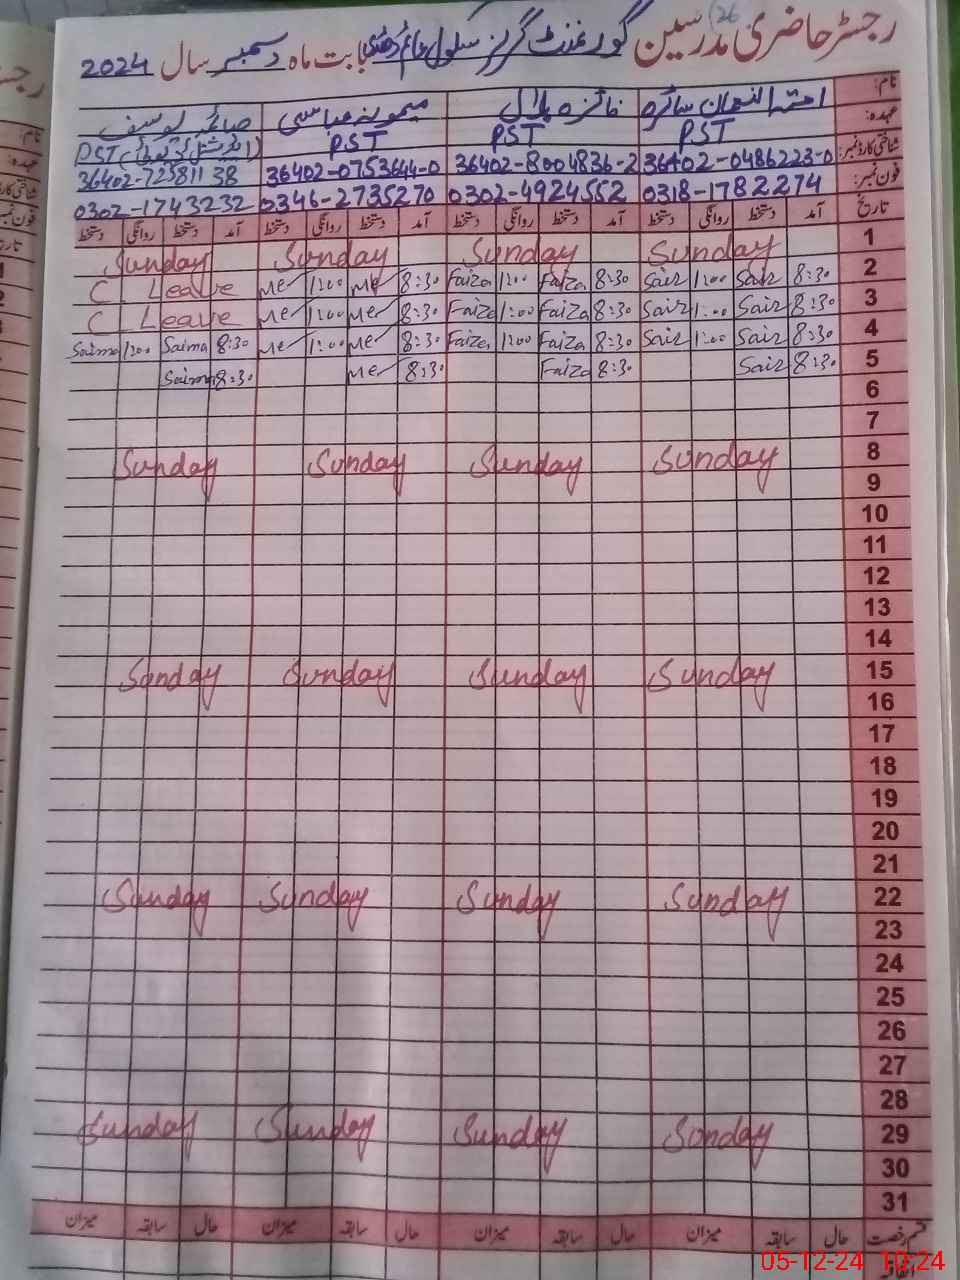 26
رجسٹر حاضری مدرسین گورنمنٹ گرلز سکول بابت ماہ دسمبر سال 2024
نام: سائرہ فائزہ بلال میمونہ عباسی صائمہ یوسف
عہدہ: PST PST PST PST
شناختی کارڈ نمبر: 36402-0486223-0 36402-8004836-2 36402-0753644-0 36402-725811 38
فون نمبر: 0318-1782274 0302-4924552 0346-2735270 0302-1743232
تاریخ آمد دستخط روانگی دستخط آمد دستخط روانگی دستخط آمد دستخط روانگی دستخط آمد دستخط روانگی دستخط
1 Sunday Sunday Sunday Sunday
2 8:30 Sair 1:00 Sair 8:30 Faiza 1:00 Faiza 8:30 Me 1:00 Me C Leave
3 8:30 Sair 1:00 Sair 8:30 Faiza 1:00 Faiza 8:30 Me 1:00 Me C Leave
4 8:30 Sair 1:00 Sair 8:30 Faiza 1:00 Faiza 8:30 Me 1:00 Me 8:30 Saima 1:00 Saima
5 8:30 Sair 8:30 Faiza 8:30 Me 8:30 Saima
6
7
8 Sunday Sunday Sunday Sunday
9
10
11
12
13
14
15 Sunday Sunday Sunday Sunday
16
17
18
19
20
21
22 Sunday Sunday Sunday Sunday
23
24
25
26
27
28
29 Sunday Sunday Sunday Sunday
30
31
قسم رخصت حال سابقہ میزان حال سابقہ میزان حال سابقہ میزان حال سابقہ میزان
05-12-24 10:24